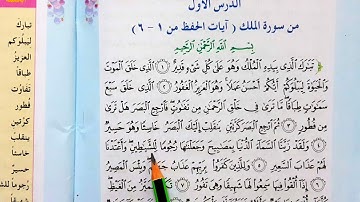 الدرس الأول
من سورة الملك ( آيات الحفظ من ١ - ٦ )
بِسْمِ اللَّهِ الرَّحْمَٰنِ الرَّحِيمِ
تَبَٰرَكَ الَّذِي بِيَدِهِ الْمُلْكُ وَهُوَ عَلَىٰ كُلِّ شَيْءٍ قَدِيرٌ ١ الَّذِي خَلَقَ الْمَوْتَ
وَالْحَيَوٰةَ لِيَبْلُوَكُمْ أَيُّكُمْ أَحْسَنُ عَمَلًا وَهُوَ الْعَزِيزُ الْغَفُورُ ٢ الَّذِي خَلَقَ سَبْعَ
سَمَٰوَٰتٍ طِبَاقًا مَّا تَرَىٰ فِي خَلْقِ الرَّحْمَٰنِ مِن تَفَٰوُتٍ فَارْجِعِ الْبَصَرَ هَلْ تَرَىٰ
مِن فُطُورٍ ٣ ثُمَّ ارْجِعِ الْبَصَرَ كَرَّتَيْنِ يَنقَلِبْ إِلَيْكَ الْبَصَرُ خَاسِئًا وَهُوَ حَسِيرٌ
٤ وَلَقَدْ زَيَّنَّا السَّمَاءَ الدُّنْيَا بِمَصَٰبِيحَ وَجَعَلْنَٰهَا رُجُومًا لِّلشَّيَٰطِينِ وَأَعْتَدْنَا
لَهُمْ عَذَابَ السَّعِيرِ ٥ وَلِلَّذِينَ كَفَرُوا بِرَبِّهِمْ عَذَابُ جَهَنَّمَ وَبِئْسَ الْمَصِيرُ
٦ إِذَا أُلْقُوا فِيهَا سَمِعُوا لَهَا شَهِيقًا وَهِيَ تَفُورُ ٧ تَكَادُ تَمَيَّزُ مِنَ الْغَيْظِ
تبارك
ليبلوكم
العزيز
طباقاً
تفاوت
فطور
كرتين
ينقلب
خاسئاً
حسير
رجوماً